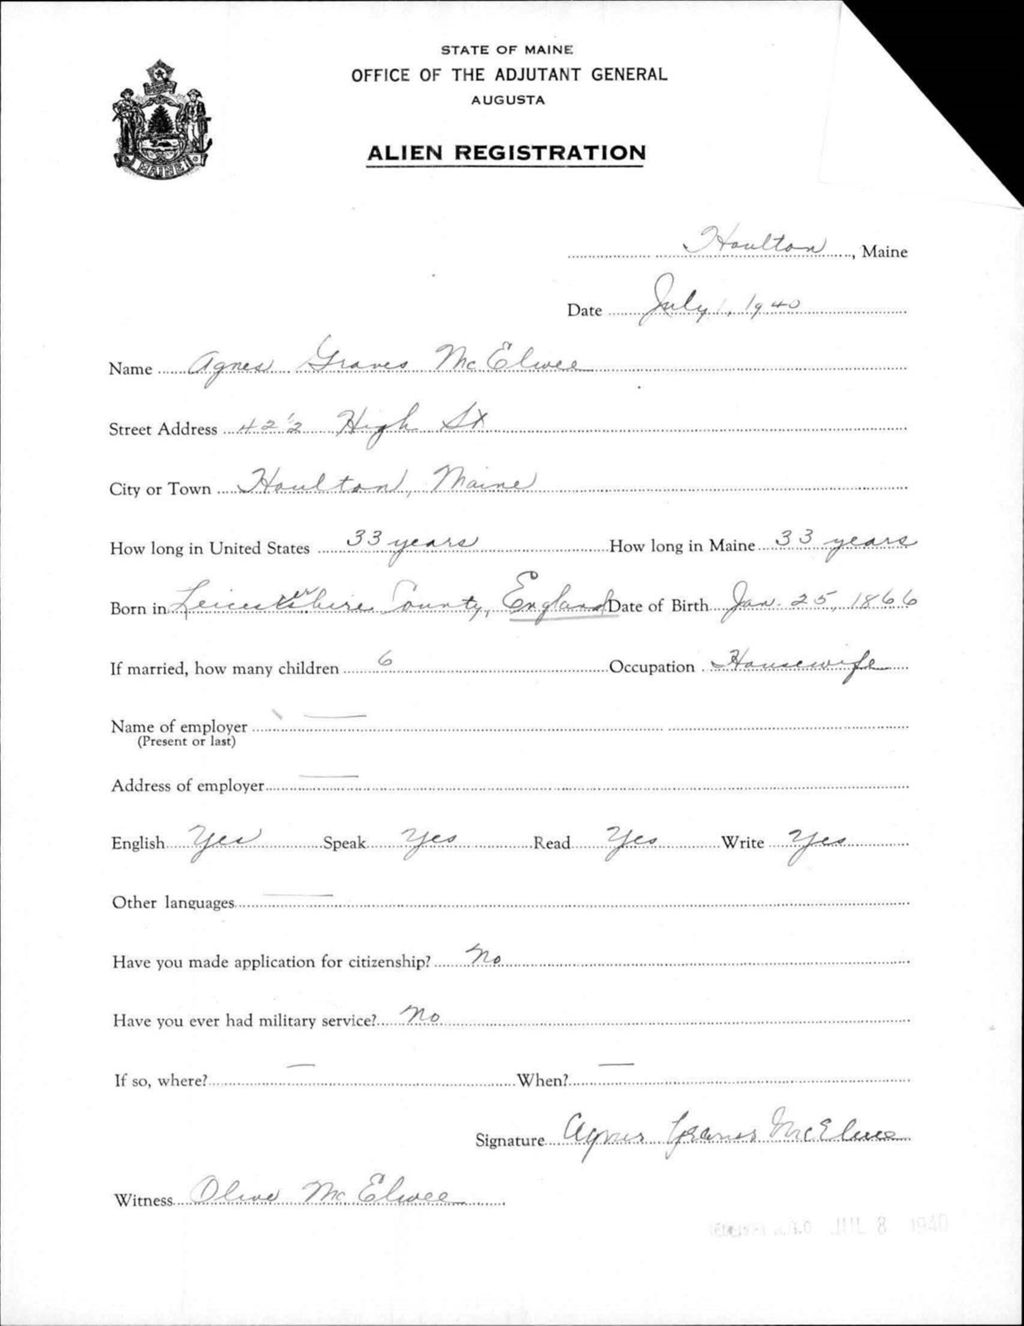 STATE OF MAINE
OFFICE OF THE ADJUTANT GENERAL
AUGUSTA
ALIEN REGISTRATION
MAINE
Houlton, Maine
Date July 1, 1940
Name Agnes Graves McElwee
Street Address 42 1/2 High St
City or Town Houlton, Maine
How long in United States 33 years How long in Maine 33 years
Born in Leicestershire County, England Date of Birth Jan. 25, 1866
If married, how many children 6 Occupation Housewife
Name of employer
(Present or last)
Address of employer
English Yes Speak Yes Read Yes Write Yes
Other languages
Have you made application for citizenship? No
Have you ever had military service? No
If so, where? When?
Signature Agnes Graves McElwee
Witness Olive McElwee
A.G.O. JUL 8 1940